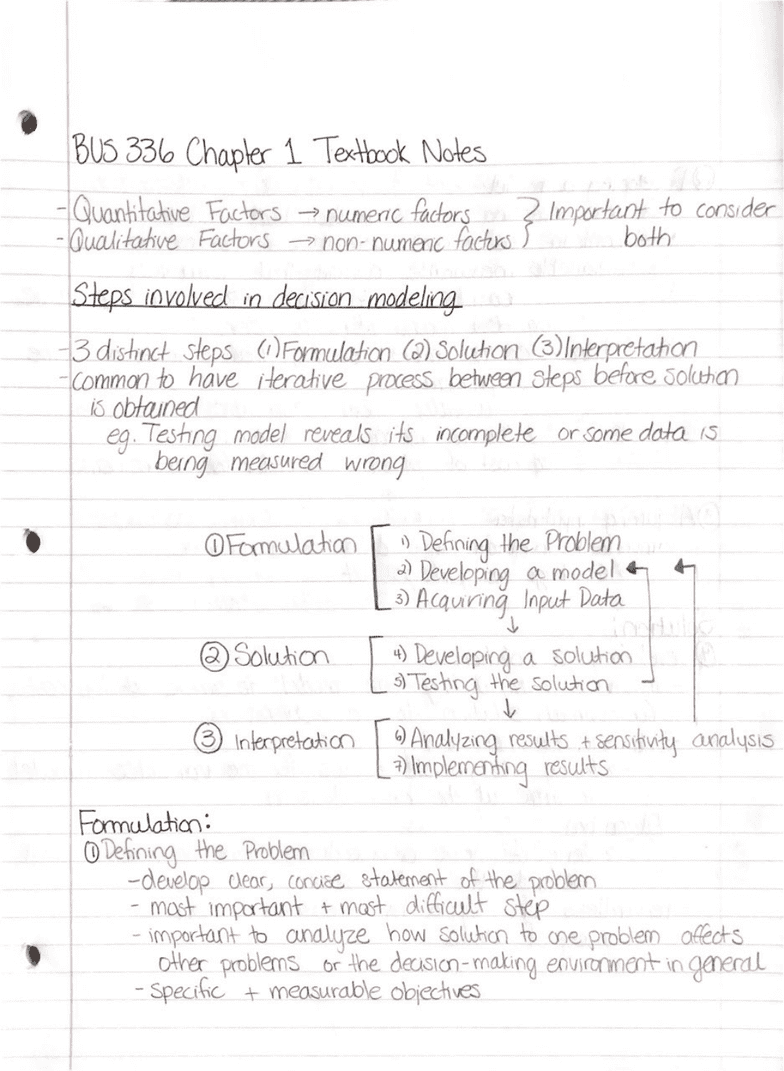 BUS 336 Chapter 1 Textbook Notes
- Quantitative Factors → numeric factors } Important to consider
- Qualitative Factors → non-numeric factors } both
Steps involved in decision modeling
- 3 distinct steps (1) Formulation (2) Solution (3) Interpretation
- common to have iterative process between steps before solution
is obtained
eg. Testing model reveals its incomplete or some data is
being measured wrong
① Formulation [ 1) Defining the Problem
2) Developing a model
3) Acquiring Input Data
↓
② Solution [ 4) Developing a solution
5) Testing the solution
↓
③ Interpretation [ 6) Analyzing results + sensitivity analysis
7) Implementing results
Formulation:
① Defining the Problem
- develop clear, concise statement of the problem
- most important + most difficult step
- important to analyze how solution to one problem affects
other problems or the decision-making environment in general
- Specific + measurable objectives